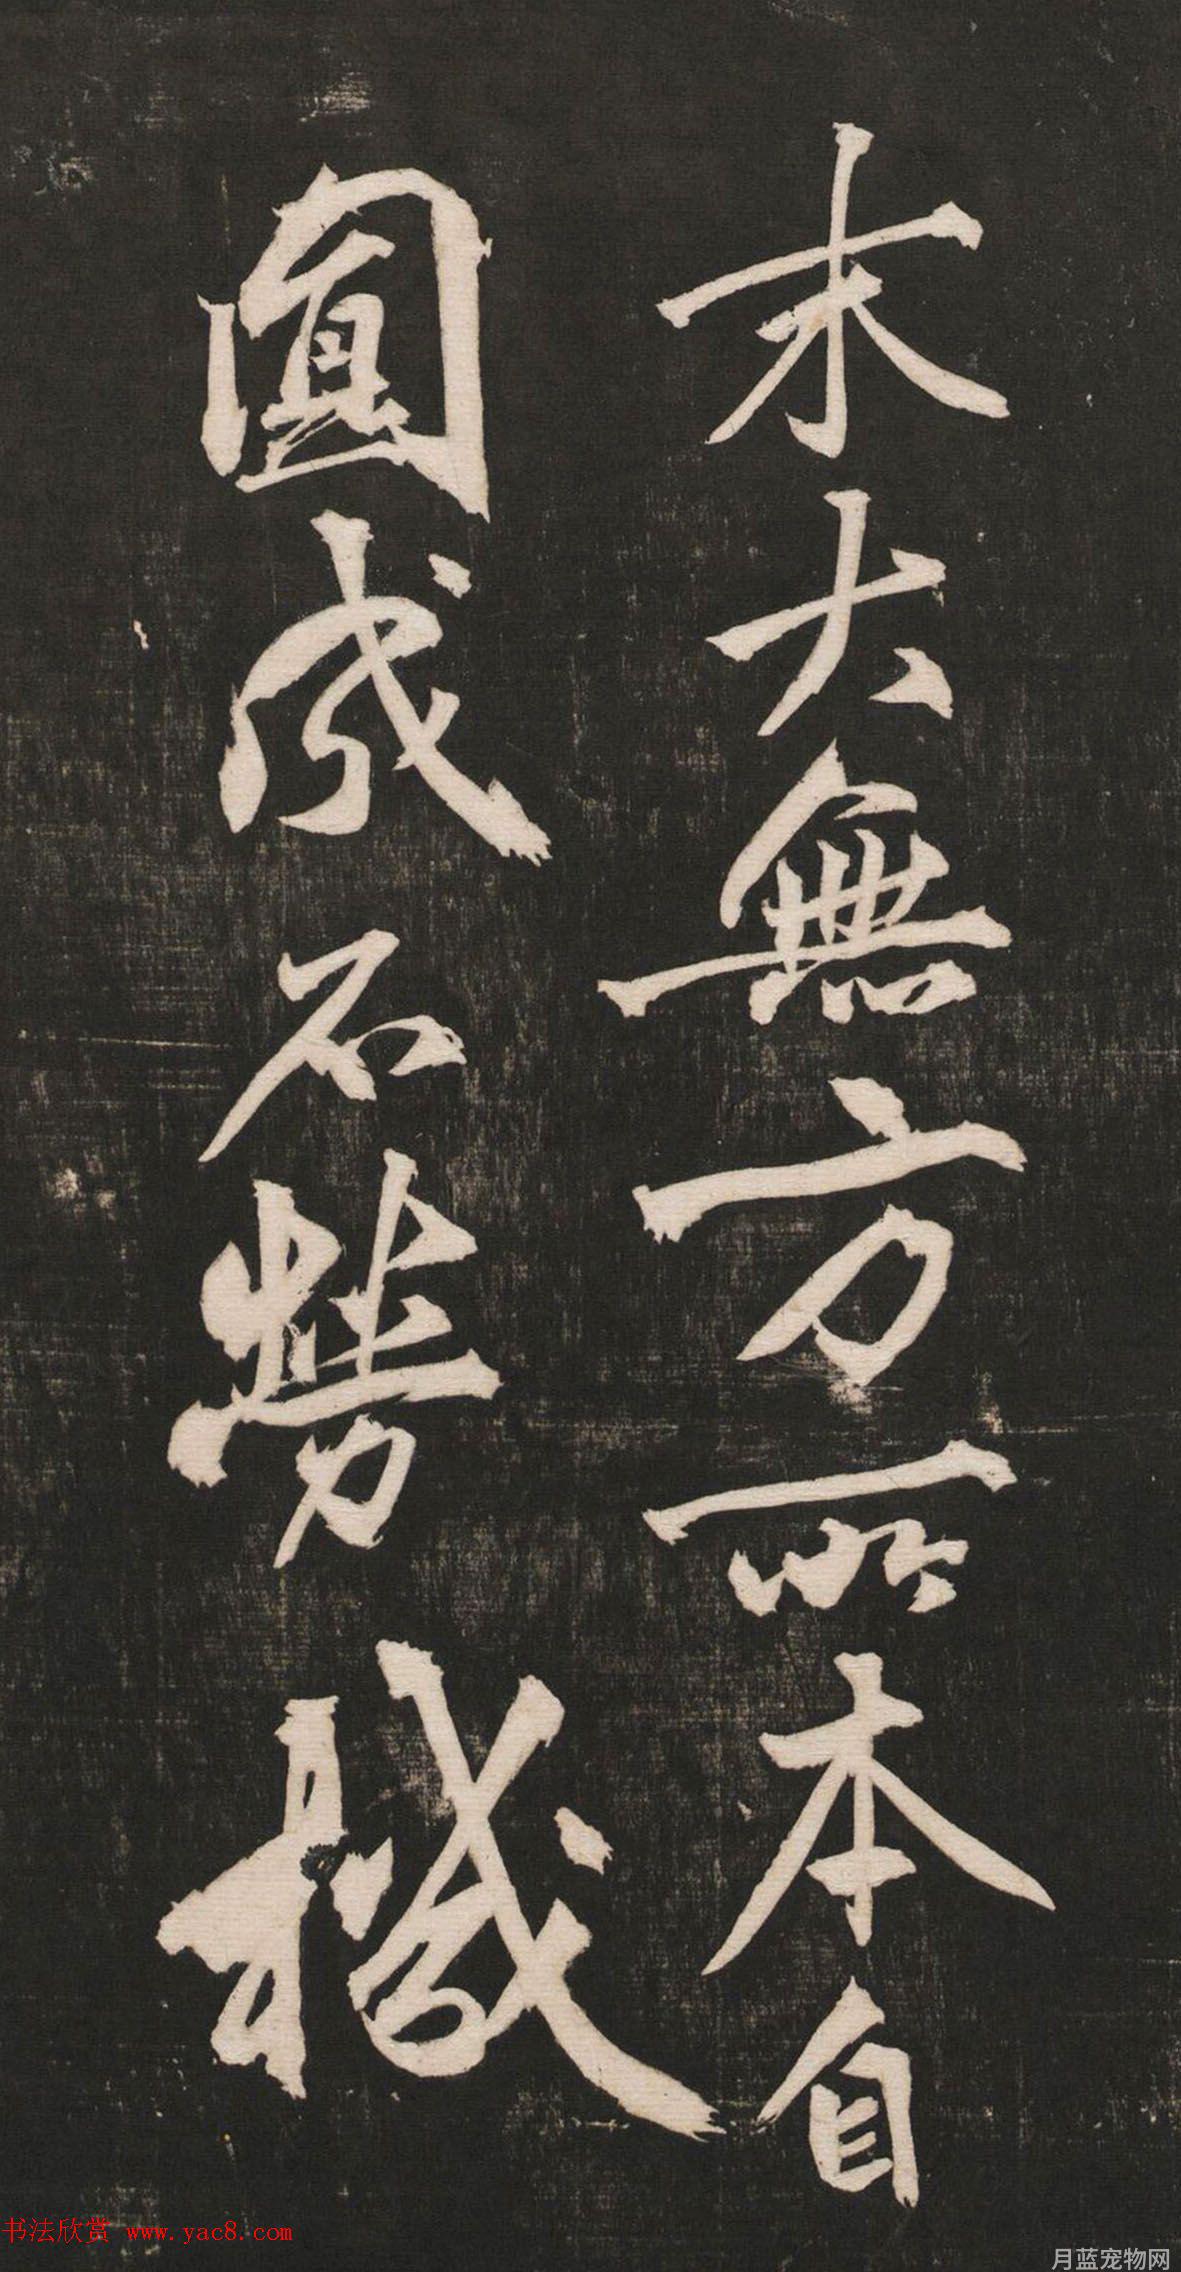 末大無方所本自
圓成不勞機
书法欣赏 www.yac8.com
月蓝宠物网